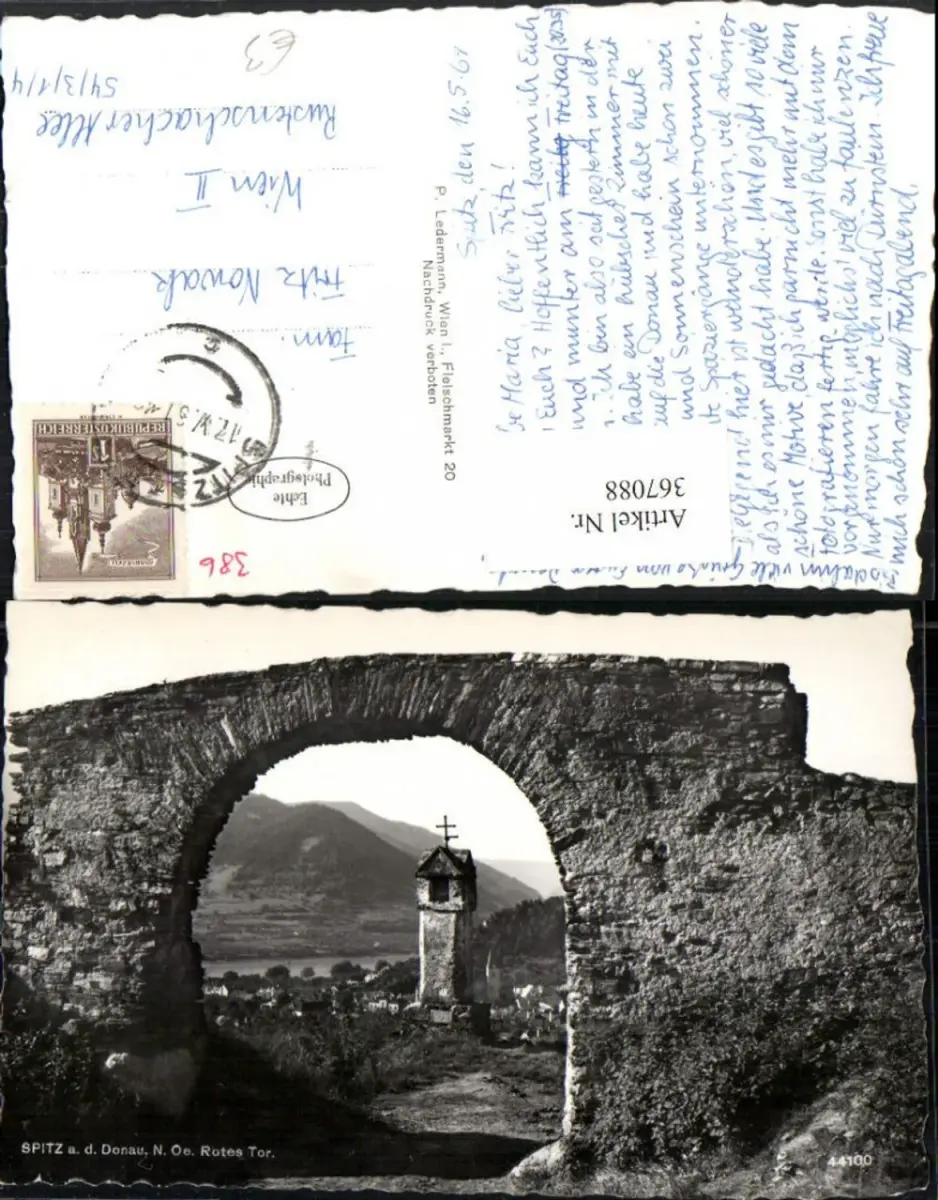 Spitz, den 16.5.61
be Maria, lieber Fritz!
Euch? Hoffentlich kann ich Euch
und munter am Freitag (2035)
ich bin also seit gestern in der
habe ein hübsches Zimmer mit
auf die Donau und habe heute
und Sonnenschein schon zwei
te Spaziergänge unternommen.
Gegend hier ist wunderschön, viel schöner
als ich es mir gedacht habe. Und es gibt so viele
schöne Motive, dass ich gar nicht mehr mit dem
fotografieren fertig werde. Sonst habe ich mir
vorgenommen möglichst viel zu faulenzen.
Nur morgen fahre ich nach Dürnstein. Ich freue
mich schon sehr auf Freitagabend.
viele Grüsse von Eurer
Artikel Nr.
367088
P. Ledermann, Wien I., Fleischmarkt 20
Nachdruck verboten
Echte
Photographie
386
REPUBLIK ÖSTERREICH
1 S
MARIAZELL
SPITZ
17.V.61
Fam.
Fritz Nowak
Wien II
Rustenschacher Allee
54/3/1/4
€3
SPITZ a. d. Donau, N. Oe. Rotes Tor.
44100